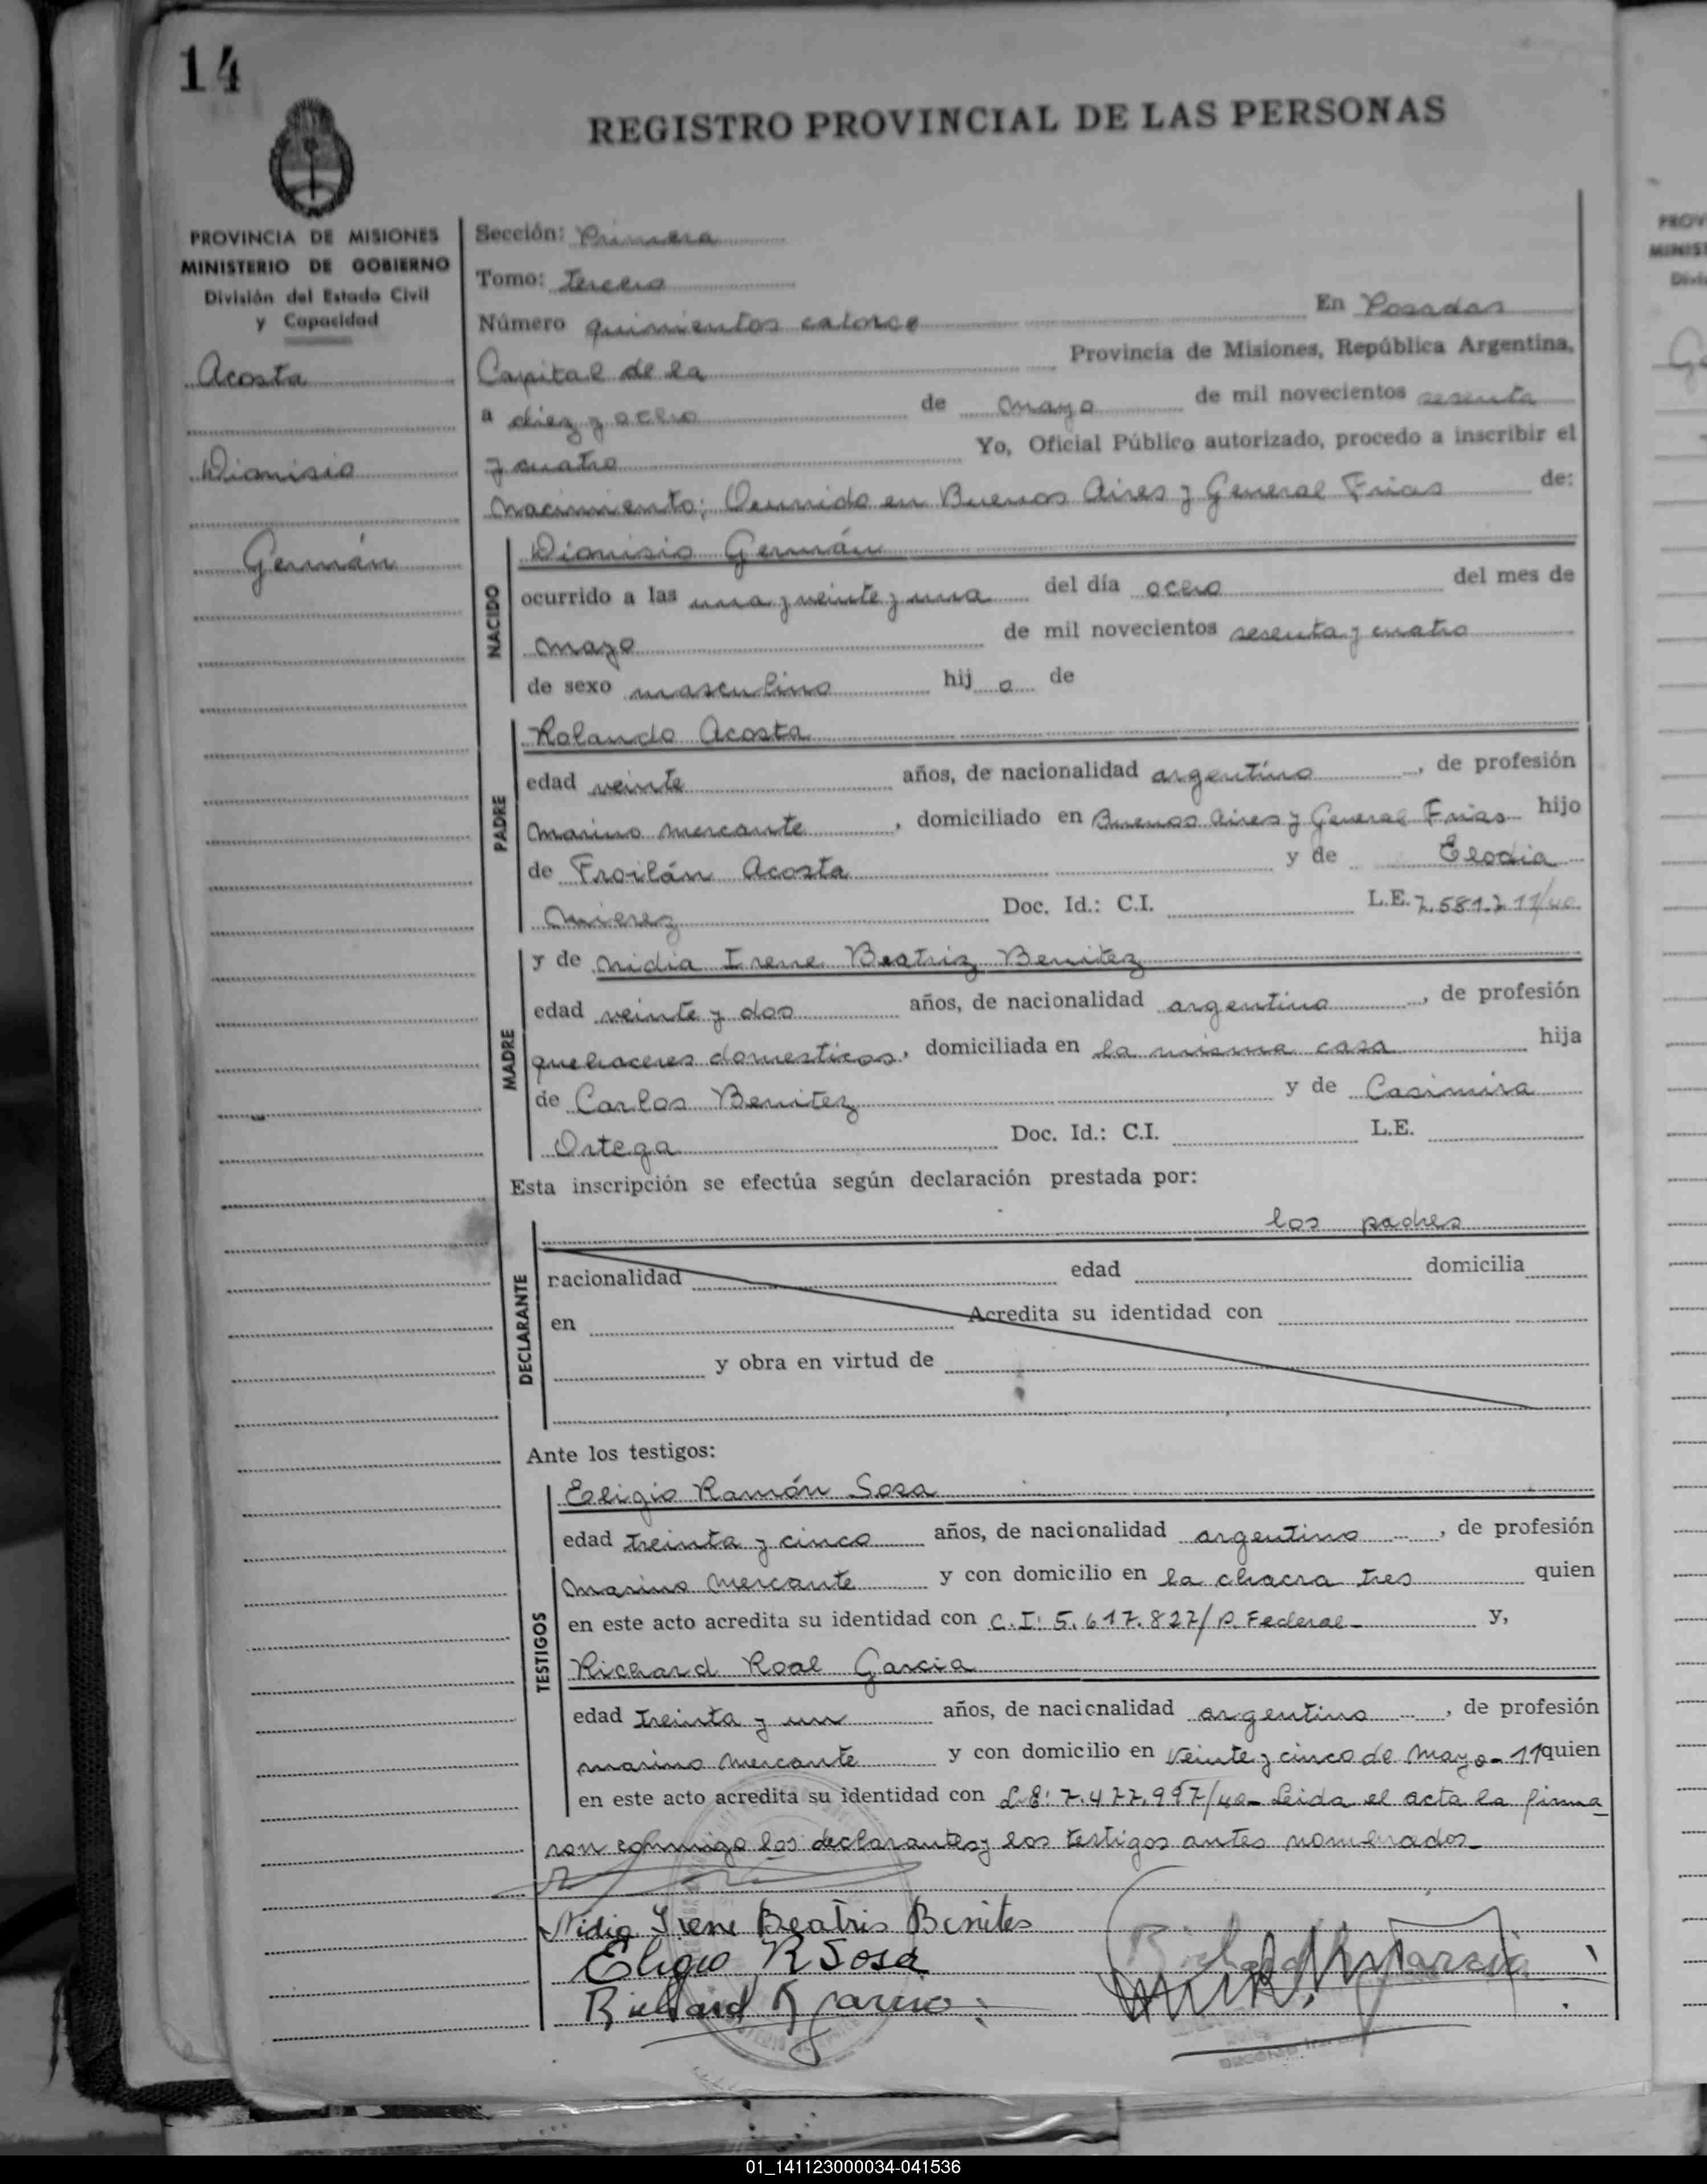 14
REGISTRO PROVINCIAL DE LAS PERSONAS
PROVINCIA DE MISIONES
MINISTERIO DE GOBIERNO
División del Estado Civil
y Capacidad
Acosta
Dionisio
Germán
Sección: Primera
Tomo: tercero
Número quinientos catorce En Posadas
Capital de la Provincia de Misiones, República Argentina,
a diez y ocho de mayo de mil novecientos sesenta
y cuatro Yo, Oficial Público autorizado, procedo a inscribir el
nacimiento: Ocurrido en Buenos Aires y General Frias de:
NACIDO
Dionisio Germán
ocurrido a las una y veinte y una del día ocho del mes de
mayo de mil novecientos sesenta y cuatro
de sexo masculino hij o de
PADRE
Rolando Acosta
edad veinte años, de nacionalidad argentino, de profesión
marino mercante, domiciliado en Buenos Aires y General Frias hijo
de Froilán Acosta y de Elodia
Mierez Doc. Id.: C.I. L.E. 7.581.211/40
MADRE
y de Nidia Irene Beatriz Benitez
edad veinte y dos años, de nacionalidad argentina, de profesión
quehaceres domesticos, domiciliada en la misma casa hija
de Carlos Benitez y de Casimira
Ortega Doc. Id.: C.I. L.E.
Esta inscripción se efectúa según declaración prestada por:
DECLARANTE
los padres
nacionalidad edad domicilia
en Acredita su identidad con
y obra en virtud de
Ante los testigos:
TESTIGOS
Eligio Ramón Sosa
edad treinta y cinco años, de nacionalidad argentino, de profesión
marino mercante y con domicilio en la chacra tres quien
en este acto acredita su identidad con C.I: 5.617.827/P. Federal- y,
Richard Roal Garcia
edad treinta y un años, de nacicnalidad argentino, de profesión
marino mercante y con domicilio en Veinte y cinco de Mayo-11 quien
en este acto acredita su identidad con L.E: 7.477.997/40- Leida el acta la firma
ron conmigo los declarantes y los testigos antes nombrados-
Nidia Irene Beatris Benites
Eligio R Sosa
Richard R Garcia
01_141123000034-041536